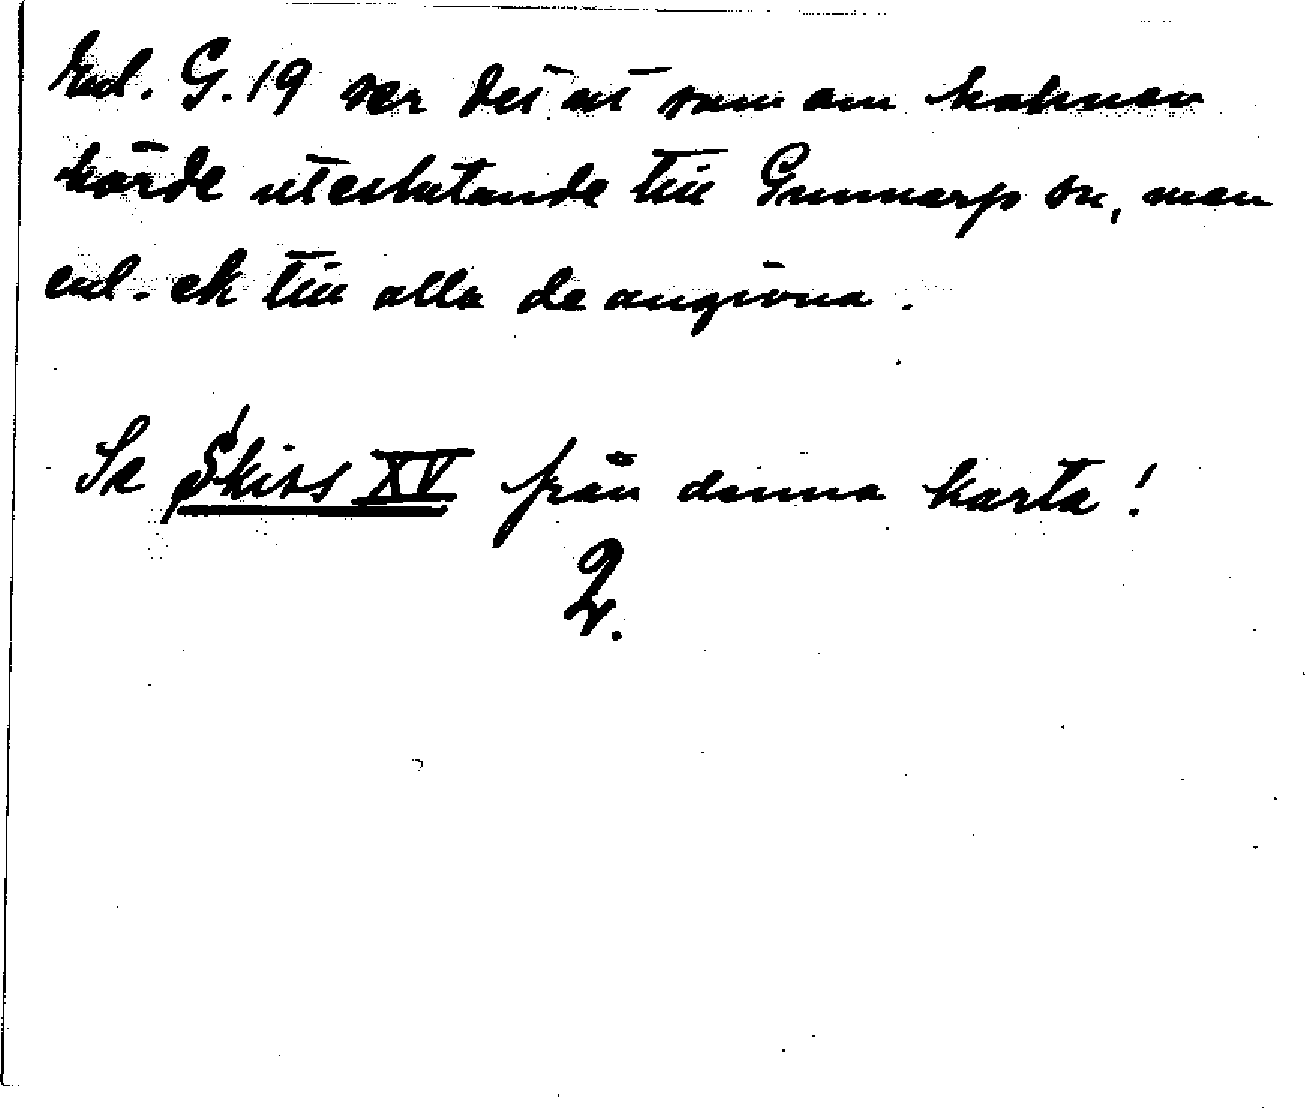 End. G. 19 ser det ut som om holmen
hörde uteslutande till Gunnarp sn, men
enl. ek till alla de angivna.
Se Skiss XV från denna karta!
2.